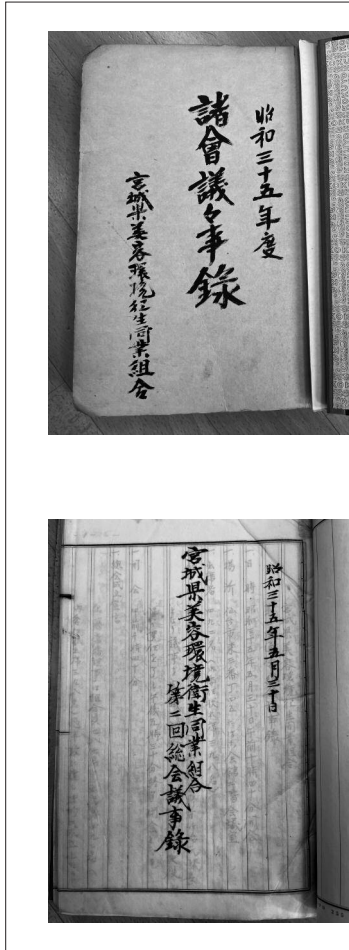 昭和三十五年度
諸會議々事錄
宮城県美容環境衛生同業組合
昭和三十五年五月三十日
宮城県美容環境衛生同業組合
第二回総会議事錄